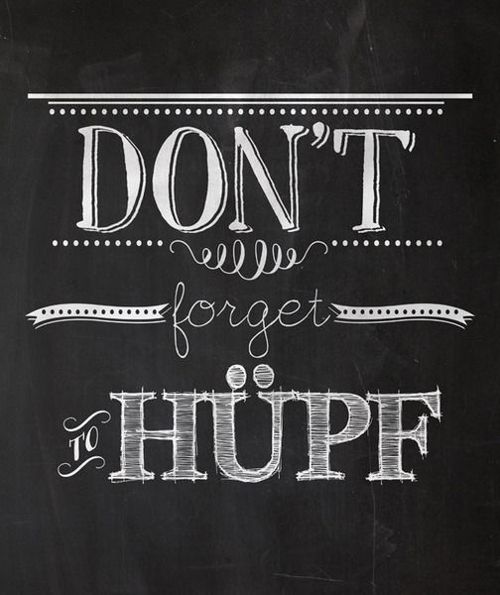 DON'T
forget
TO HÜPF